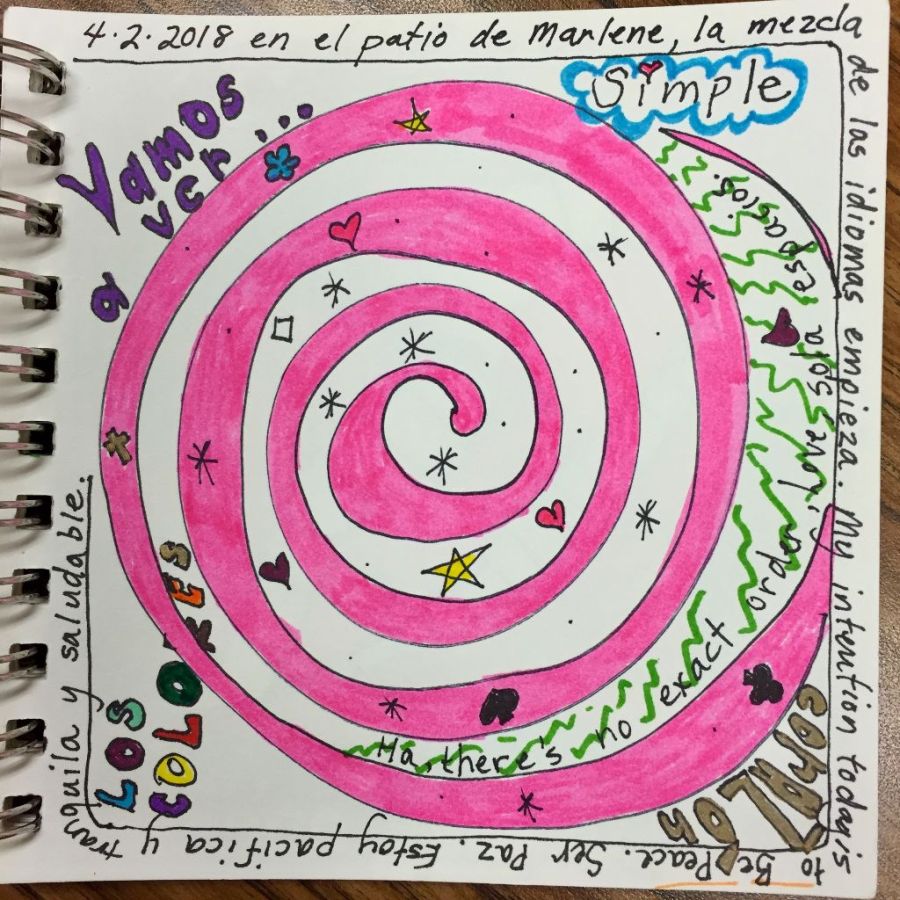 4.2.2018 en el patio de Marlene, la mezcla
de las idiomas empieza. My intention today is
to Be Peace. Ser Paz. Estoy pacifica y
tranquila y saludable.
Vamos
a ver...
Simple
Ha, there's no exact order, sola espacios.
LOS
COLORES